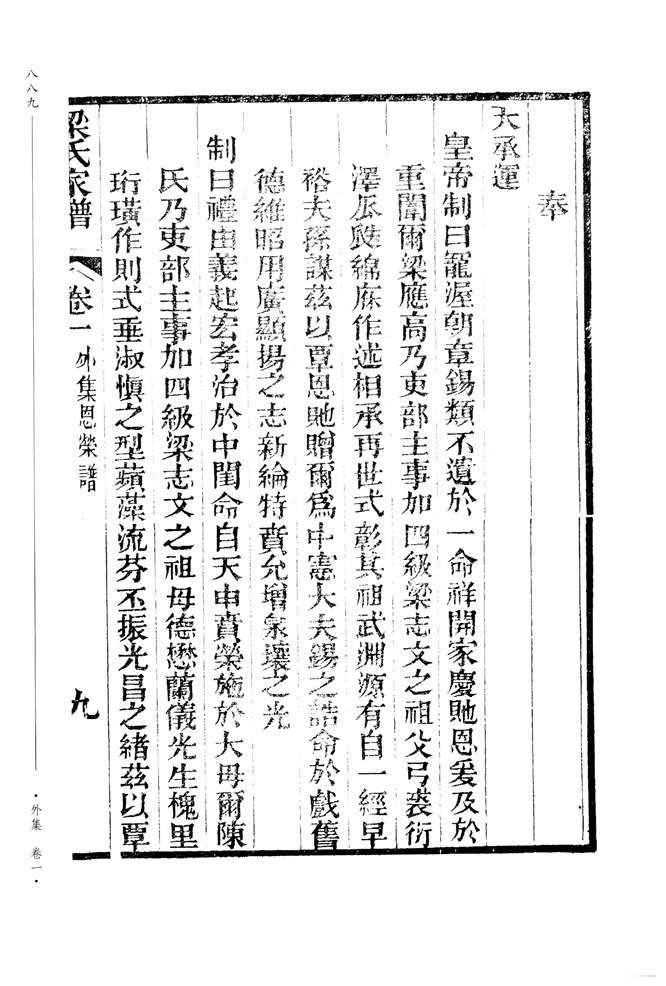 奉
天承運
皇帝制曰寵渥朝章錫類不遺於一命祥開家慶貤恩爰及於
重闈爾梁應高乃吏部主事加四級梁志文之祖父弓裘衍
澤瓜瓞綿庥作述相承再世式彰其祖武淵源有自一經早
裕夫孫謀茲以覃恩貤贈爾爲中憲大夫錫之誥命於戲舊
德維昭用廣顯揚之志新綸特賁允增泉壤之光
制曰禮由義起宏孝治於中閨命自天申賁榮施於大母爾陳
氏乃吏部主事加四級梁志文之祖母德懋蘭儀光生槐里
珩璜作則式垂淑慎之型蘋藻流芬丕振光昌之緒茲以覃
梁氏家譜 卷一 外集恩榮譜 九
八八九
·外集 卷一·